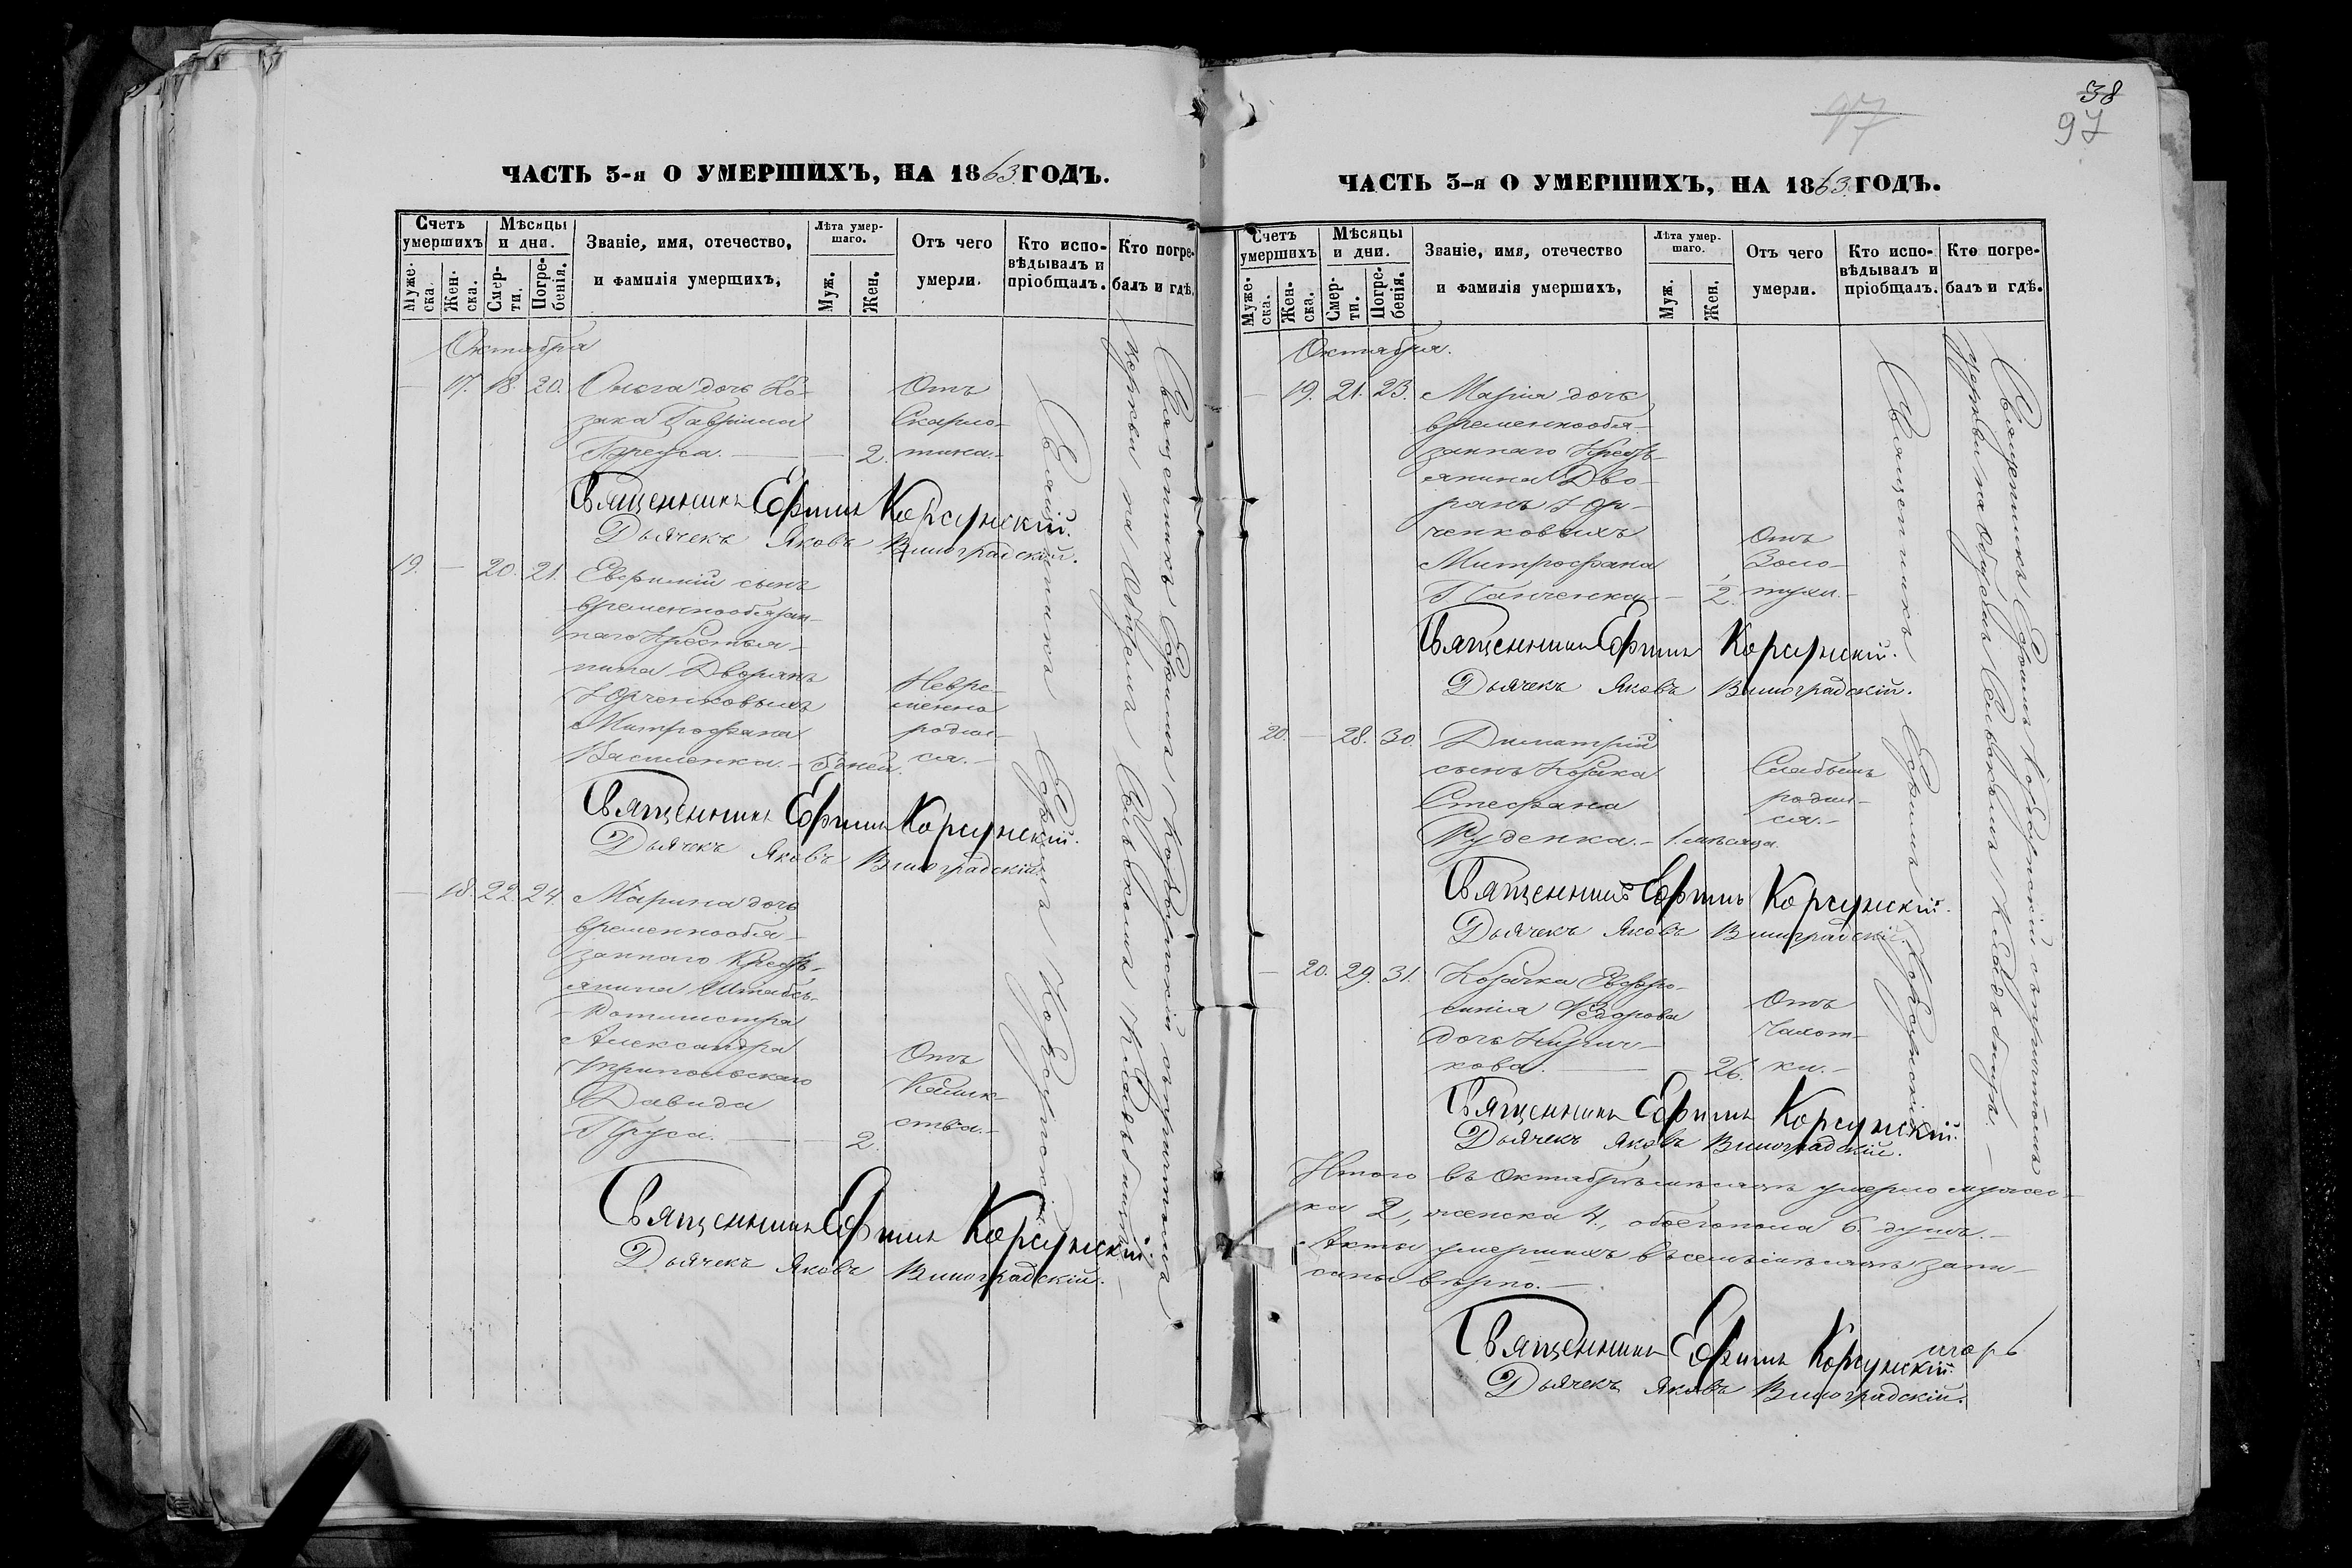 ЧАСТЬ 3-я О УМЕРШИХЪ, НА 1863 ГОДЪ.
Счетъ умершихъ
Муже-ска.
Жен-ска.
Мѣсяцы и дни.
Смер-ти.
Погре-бенія.
Званіе, имя, отечество,
и фамилія умерщихъ,
Лѣта умер-шаго.
Муж.
Жен.
Отъ чего умерли.
Кто испо-вѣдывалъ и пріобщалъ.
Кто погре-балъ и гдѣ.
Октября
— 17. 18. 20. Ольга дочь Ко- Отъ
зака Гавріила Скарла-
— 2. тина.
Священникъ Ефимъ Корсунскій.
Дьячекъ Яковъ Виноградскій.
19. — 20. 21. Евфимій сынъ
временнообязан-
наго Крестья-
нина Дворянъ
Юрченковыхъ Невре-
Митрофана менно
родил-
Василенка. — 5 дней. ся. —
Священникъ Ефимъ Корсунскій.
Дьячекъ Яковъ Виноградскій.
— 18. 22. 24. Марина дочь
временнообя-
заннаго Крест-
янина Штабсъ-
Ротмистра
Александра Отъ
Трипольскаго
Давида
ства. —
Пруса. — 2.
Священникъ Ефимъ Корсунскій.
Дьячекъ Яковъ Виноградскій.
Священникъ Ефимъ Корсунскій
Священникъ Ефимъ Корсунскій съ причтомъ
церкви на Общемъ Сельскомъ Кладбищѣ. —
38
97
97
ЧАСТЬ 3-я О УМЕРШИХЪ, НА 1863 ГОДЪ.
Счетъ умершихъ
Муже-ска.
Жен-ска.
Мѣсяцы и дни.
Смер-ти.
Погре-бенія.
Званіе, имя, отечество
и фамилія умершихъ,
Лѣта умер-шаго.
Муж.
Жен.
Отъ чего умерли.
Кто испо-вѣдывалъ и пріобщалъ.
Кто погре-балъ и гдѣ.
Октября.
— 19. 21. 23. Марія дочь
временнообя-
заннаго Крест-
янина Дво-
рянъ Юр-
ченковыхъ Отъ
Митрофана Золо-
Панченка — 1/2. тухи. —
Священникъ Ефимъ Корсунскій.
Дьячекъ Яковъ Виноградскій.
20. — 28. 30. Димитрій
сынъ Козака Слабымъ
Стефана родил-
ся. —
Руденка. — 1. мѣсяца.
Священникъ Ефимъ Корсунскій.
Дьячекъ Яковъ Виноградскій.
— 20. 29. 31. Козачка Евфро-
синія Федорова Отъ
дочь Кирич- Чахот-
кова. — 26. ки. —
Священникъ Ефимъ Корсунскій.
Дьячекъ Яковъ Виноградскій.
Итого въ Октябрѣ мѣсяцѣ умерло мужес-
ка 2, женска 4, обоего пола 6. душъ. —
Акты умершихъ въ семъ мѣсяцѣ запи-
саны вѣрно. —
Священникъ Ефимъ Корсунскій.
Дьячекъ Яковъ Виноградскій.
Священникъ Ефимъ Корсунскій
Священникъ Ефимъ Корсунскій съ причтомъ
церкви на Общемъ Сельскомъ Кладбищѣ. —